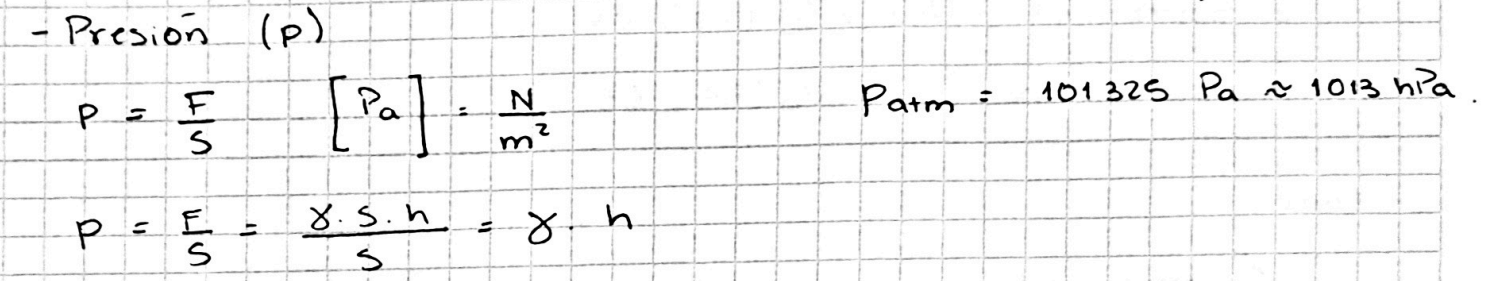 - Presión (p)
p = F/S [Pa] = N/m² Patm = 101325 Pa ≈ 1013 hPa.
p = F/S = γ.S.h/S = γ. h